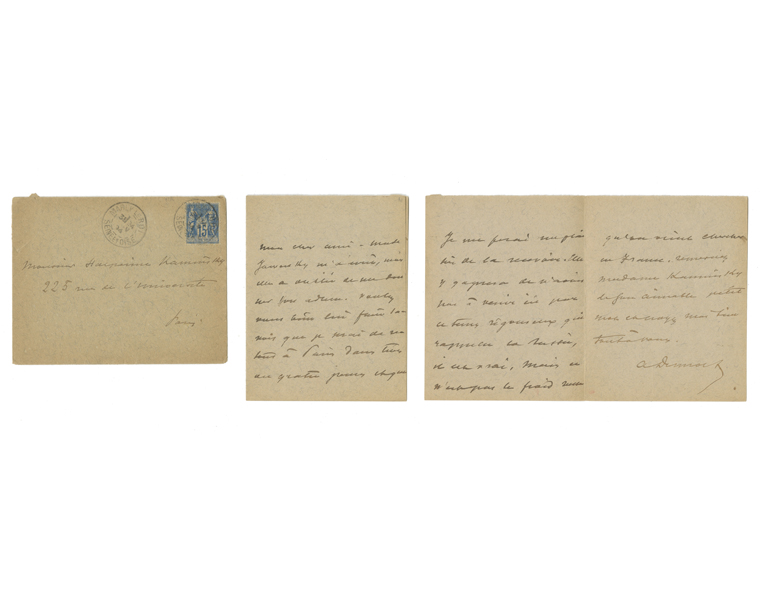 Monsieur Halpérine Kaminsky
225 rue de l'université
Paris.
15
mon cher ami - Made
Javorsky m'a écrit, mais
elle a oublié de me don
ner son adresse. Voulez
vous bien lui faire sa-
voir que je serai de re-
tour à Paris dans trois
ou quatre jours et que
Je me ferai un plai
sir de la recevoir. Elle
y gagnera de n'avoir
pas à venir ici par
un temps rigoureux qui
rappelle la Russie,
il est vrai, mais ce
n'est pas le froid russe
qu'on vient chercher
en France. Remerciez
madame Kaminsky
de son aimable
tout à vous.
A Dumas f